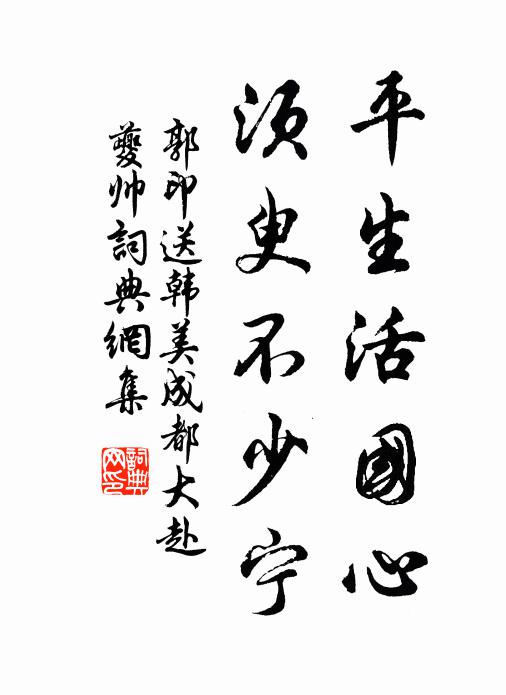 平生活國心
須臾不少宁
郭印送韩美成都大赴
夔帅詞典網集
詞典
网印